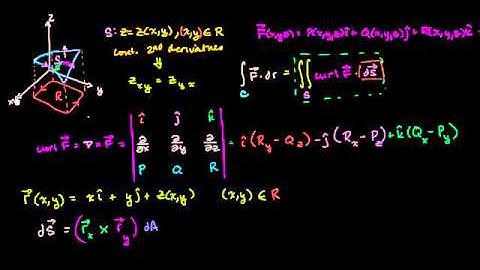 z
S: z = z(x,y), (x,y) ∈ R
cont. 2nd derivatives
z_xy = z_yx
F⃗(x,y,z) = P(x,y,z)î + Q(x,y,z)ĵ + R(x,y,z)k̂
S
R
x
y
∫_C F⃗·dr = ∬_S curl F⃗ · dS⃗
curl F⃗ = ∇ × F⃗ = | î ĵ k̂ |
| ∂/∂x ∂/∂y ∂/∂z |
| P Q R |
= î(R_y − Q_z) − ĵ(R_x − P_z) + k̂(Q_x − P_y)
r⃗(x,y) = xî + yĵ + z(x,y) (x,y) ∈ R
dS⃗ = (r⃗_x × r⃗_y) dA